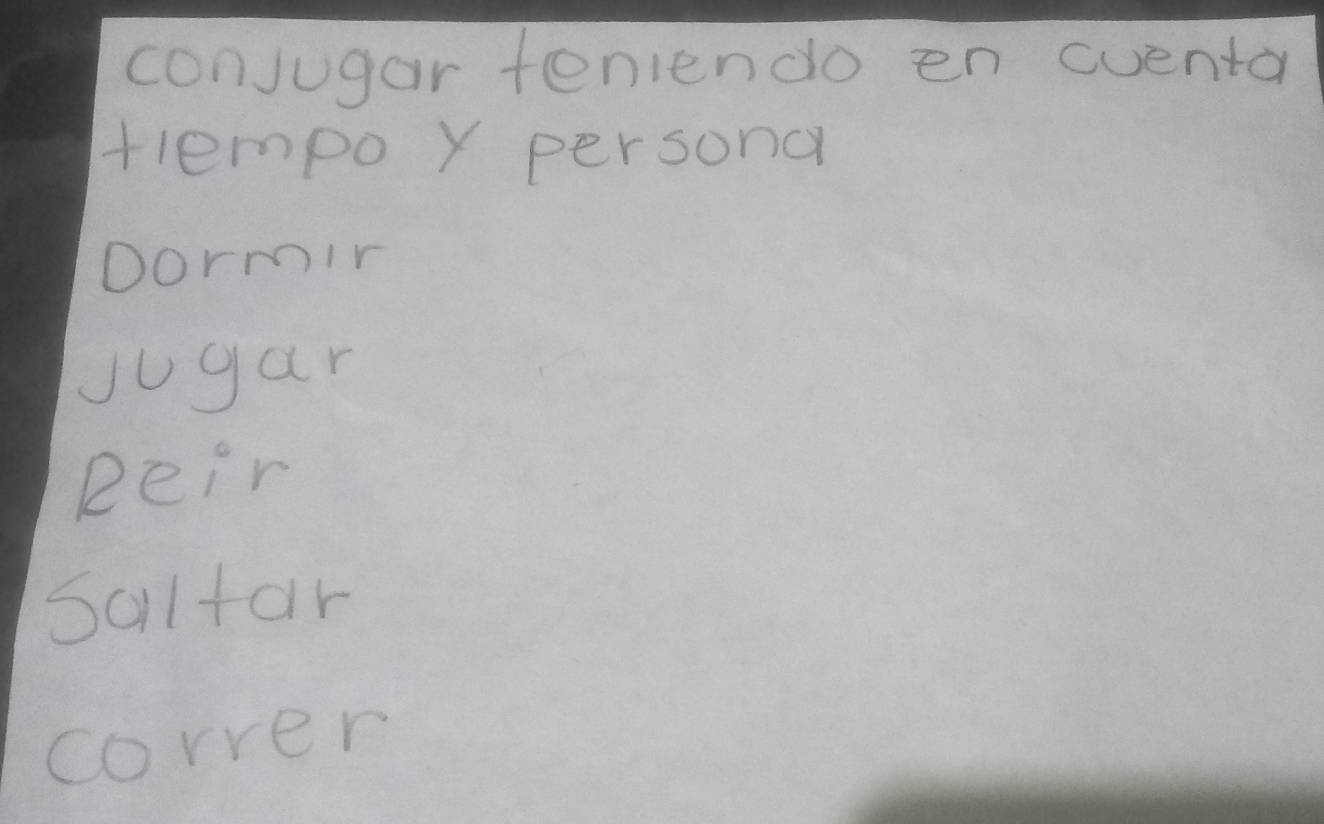 conjugar teniendo en cuenta
tiempo y persona
Dormir
Jugar
Reir
Saltar
correr